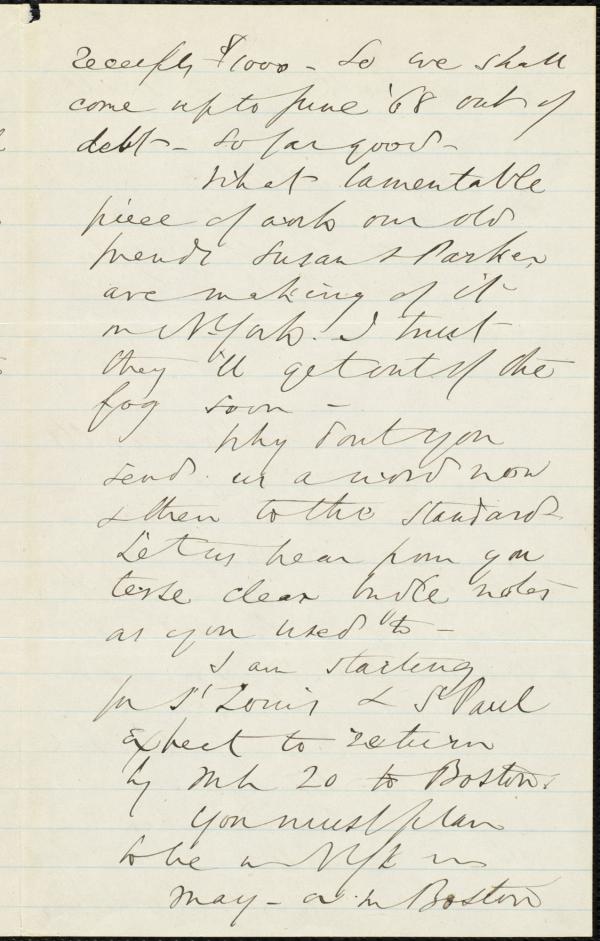 receipts $1000 - So we shall
come up to June '68 out of
debt - so far good -
What lamentable
piece of work our old
friends Susan & Parker
are making of it
in N. York. I trust
they 'll get out of the
fog soon -
Why dont you
send us a word now
& then to the Standard
Let us hear from you
terse clear notes
as you used to -
I am starting
for St Louis & St Paul
Expect to return
by Mh 20 to Boston.
You must plan
to be in NYk in
May - or in Boston